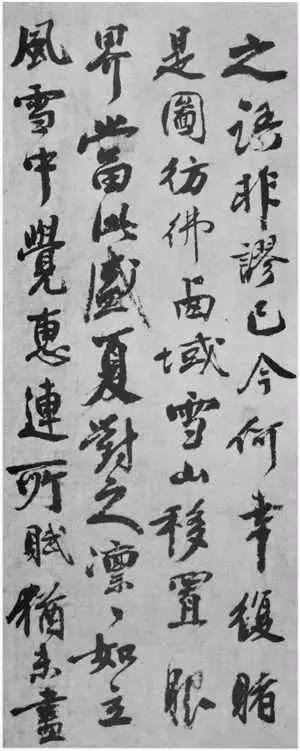 之語非謬已今何幸復睹
是圖彷彿西域雪山移置眼
界當此盛夏對之凛〻如立
風雪中覺惠連所賦猶未盡